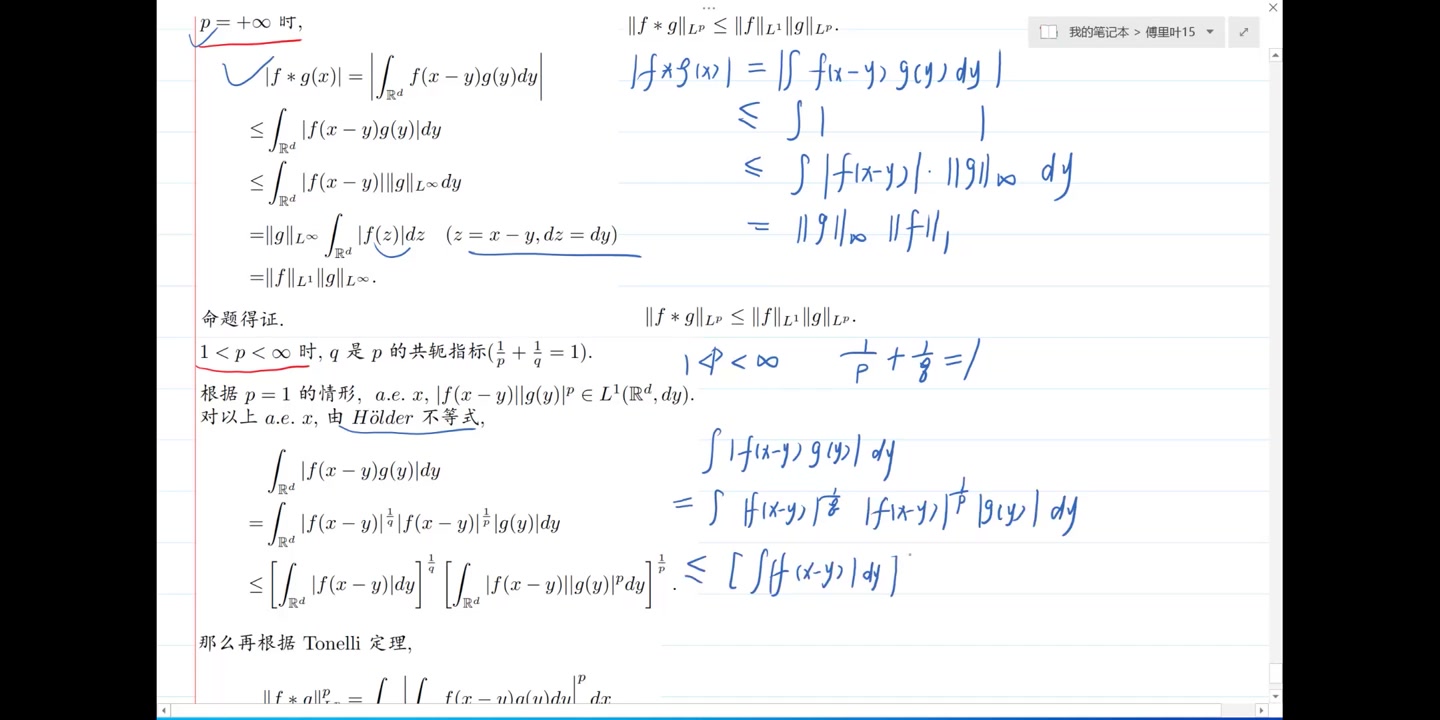 p = +∞ 时,
|f ∗ g(x)| = |∫_{ℝ^d} f(x − y)g(y)dy|
≤ ∫_{ℝ^d} |f(x − y)g(y)|dy
≤ ∫_{ℝ^d} |f(x − y)|‖g‖_{L^∞}dy
=‖g‖_{L^∞} ∫_{ℝ^d} |f(z)|dz (z = x − y, dz = dy)
=‖f‖_{L^1}‖g‖_{L^∞}.
命题得证.
1 < p < ∞ 时, q 是 p 的共轭指标(1/p + 1/q = 1).
根据 p = 1 的情形, a.e. x, |f(x − y)||g(y)|^p ∈ L^1(ℝ^d, dy).
对以上 a.e. x, 由 Hölder 不等式,
∫_{ℝ^d} |f(x − y)g(y)|dy
= ∫_{ℝ^d} |f(x − y)|^{1/q}|f(x − y)|^{1/p}|g(y)|dy
≤ [∫_{ℝ^d} |f(x − y)|dy]^{1/q} [∫_{ℝ^d} |f(x − y)||g(y)|^p dy]^{1/p}.
那么再根据 Tonelli 定理,
‖f ∗ g‖^p_{L^p} = ∫ |∫ f(x − y)g(y)dy|^p dx
‖f ∗ g‖_{L^p} ≤ ‖f‖_{L^1}‖g‖_{L^p}.
|f∗g(x)| = |∫ f(x−y) g(y) dy|
≤ ∫ | |
≤ ∫ |f(x−y)|·‖g‖_∞ dy
= ‖g‖_∞ ‖f‖_1
‖f ∗ g‖_{L^p} ≤ ‖f‖_{L^1}‖g‖_{L^p}.
1<p<∞ 1/p + 1/q = 1
∫ |f(x−y) g(y)| dy
= ∫ |f(x−y)|^{1/q} |f(x−y)|^{1/p} |g(y)| dy
≤ [∫|f(x−y)| dy]
我的笔记本 > 傅里叶15